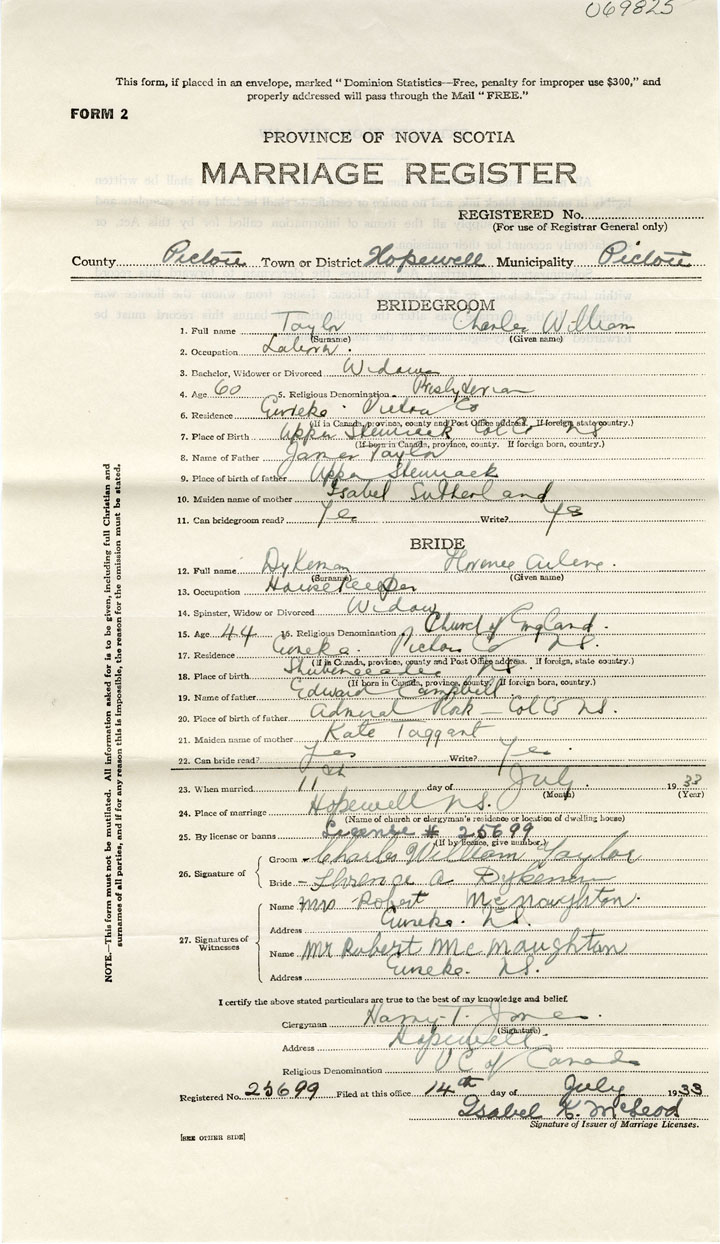 069825
This form, if placed in an envelope, marked "Dominion Statistics—Free, penalty for improper use $300," and
properly addressed will pass through the Mail "FREE."
FORM 2
PROVINCE OF NOVA SCOTIA
MARRIAGE REGISTER
REGISTERED No.
(For use of Registrar General only)
County Pictou Town or District Hopewell Municipality Pictou
BRIDEGROOM
1. Full name Taylor Charles William
(Surname) (Given name)
2. Occupation Laborer.
3. Bachelor, Widower or Divorced Widower
4. Age 60 5. Religious Denomination Presbyterian
6. Residence Eureka. Pictou Co
(If in Canada, province, county and Post Office address. If foreign, state country.)
7. Place of Birth Upper Stewiack Col Co NS
(If born in Canada, province, county. If foreign born, country.)
8. Name of Father James Taylor
9. Place of birth of father Upper Stewiack
10. Maiden name of mother Isabel Sutherland
11. Can bridegroom read? Yes Write? Yes
BRIDE
12. Full name Dykeman Florence Arlene.
(Surname) (Given name)
13. Occupation Housekeeper
14. Spinster, Widow or Divorced Widow
15. Age 44 16. Religious Denomination Church of England.
17. Residence Eureka. Pictou Co N.S.
(If in Canada, province, county and Post Office address. If foreign, state country.)
18. Place of birth Shubenacadie N.S.
(If born in Canada, province, county. If foreign born, country.)
19. Name of father Edward Campbell
20. Place of birth of father Admiral Rock Col Co N.S.
21. Maiden name of mother Kate Taggart
22. Can bride read? Yes Write? Yes.
23. When married 11th day of July 1933
(Month) (Year)
24. Place of marriage Hopewell N.S.
(Name of church or clergyman's residence or location of dwelling house)
25. By license or banns License # 25699
(If by licence, give number.)
26. Signature of Groom Charles William Taylor
Bride Florence A Dykeman
27. Signatures of Witnesses Name Mrs Robert McNaughton.
Address Eureka. N.S.
Name Mr Robert McNaughton
Address Eureka. N.S.
I certify the above stated particulars are true to the best of my knowledge and belief.
Clergyman Harry T. Jones.
(Signature)
Address Hopewell.
Religious Denomination U C of Canada
Registered No. 25699 Filed at this office 14th day of July 1933
Isabel K. McLeod
Signature of Issuer of Marriage Licenses.
[SEE OTHER SIDE]
NOTE.—This form must not be mutilated. All information asked for is to be given, including full Christian and
surnames of all parties, and if for any reason this is impossible, the reason for the omission must be stated.